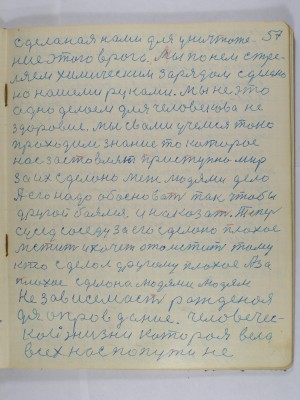 сделаная нами для уничтоже- 57
ние этого врага. Мы по нем стре-
ляем химическим зарядом сделано
но нашеми руками. Мы не это
одно делаем для человека не
здоровие. мы свами учемся токо
проходим знание то которое
нас заставляет приступно мир
за их сделано меж людями дело
А его надо обосновать так чтобы
другой боялся, и наказат. Тепер
сусед соседу за его сделано плохое
мстит и хочет отомстит тому
кто сделол другому плохое А за
плохое сделоно людями людям
Не зависемаст рожденая
для оправдание. человечес-
кой жизни котороя вела
всех нас по пути не